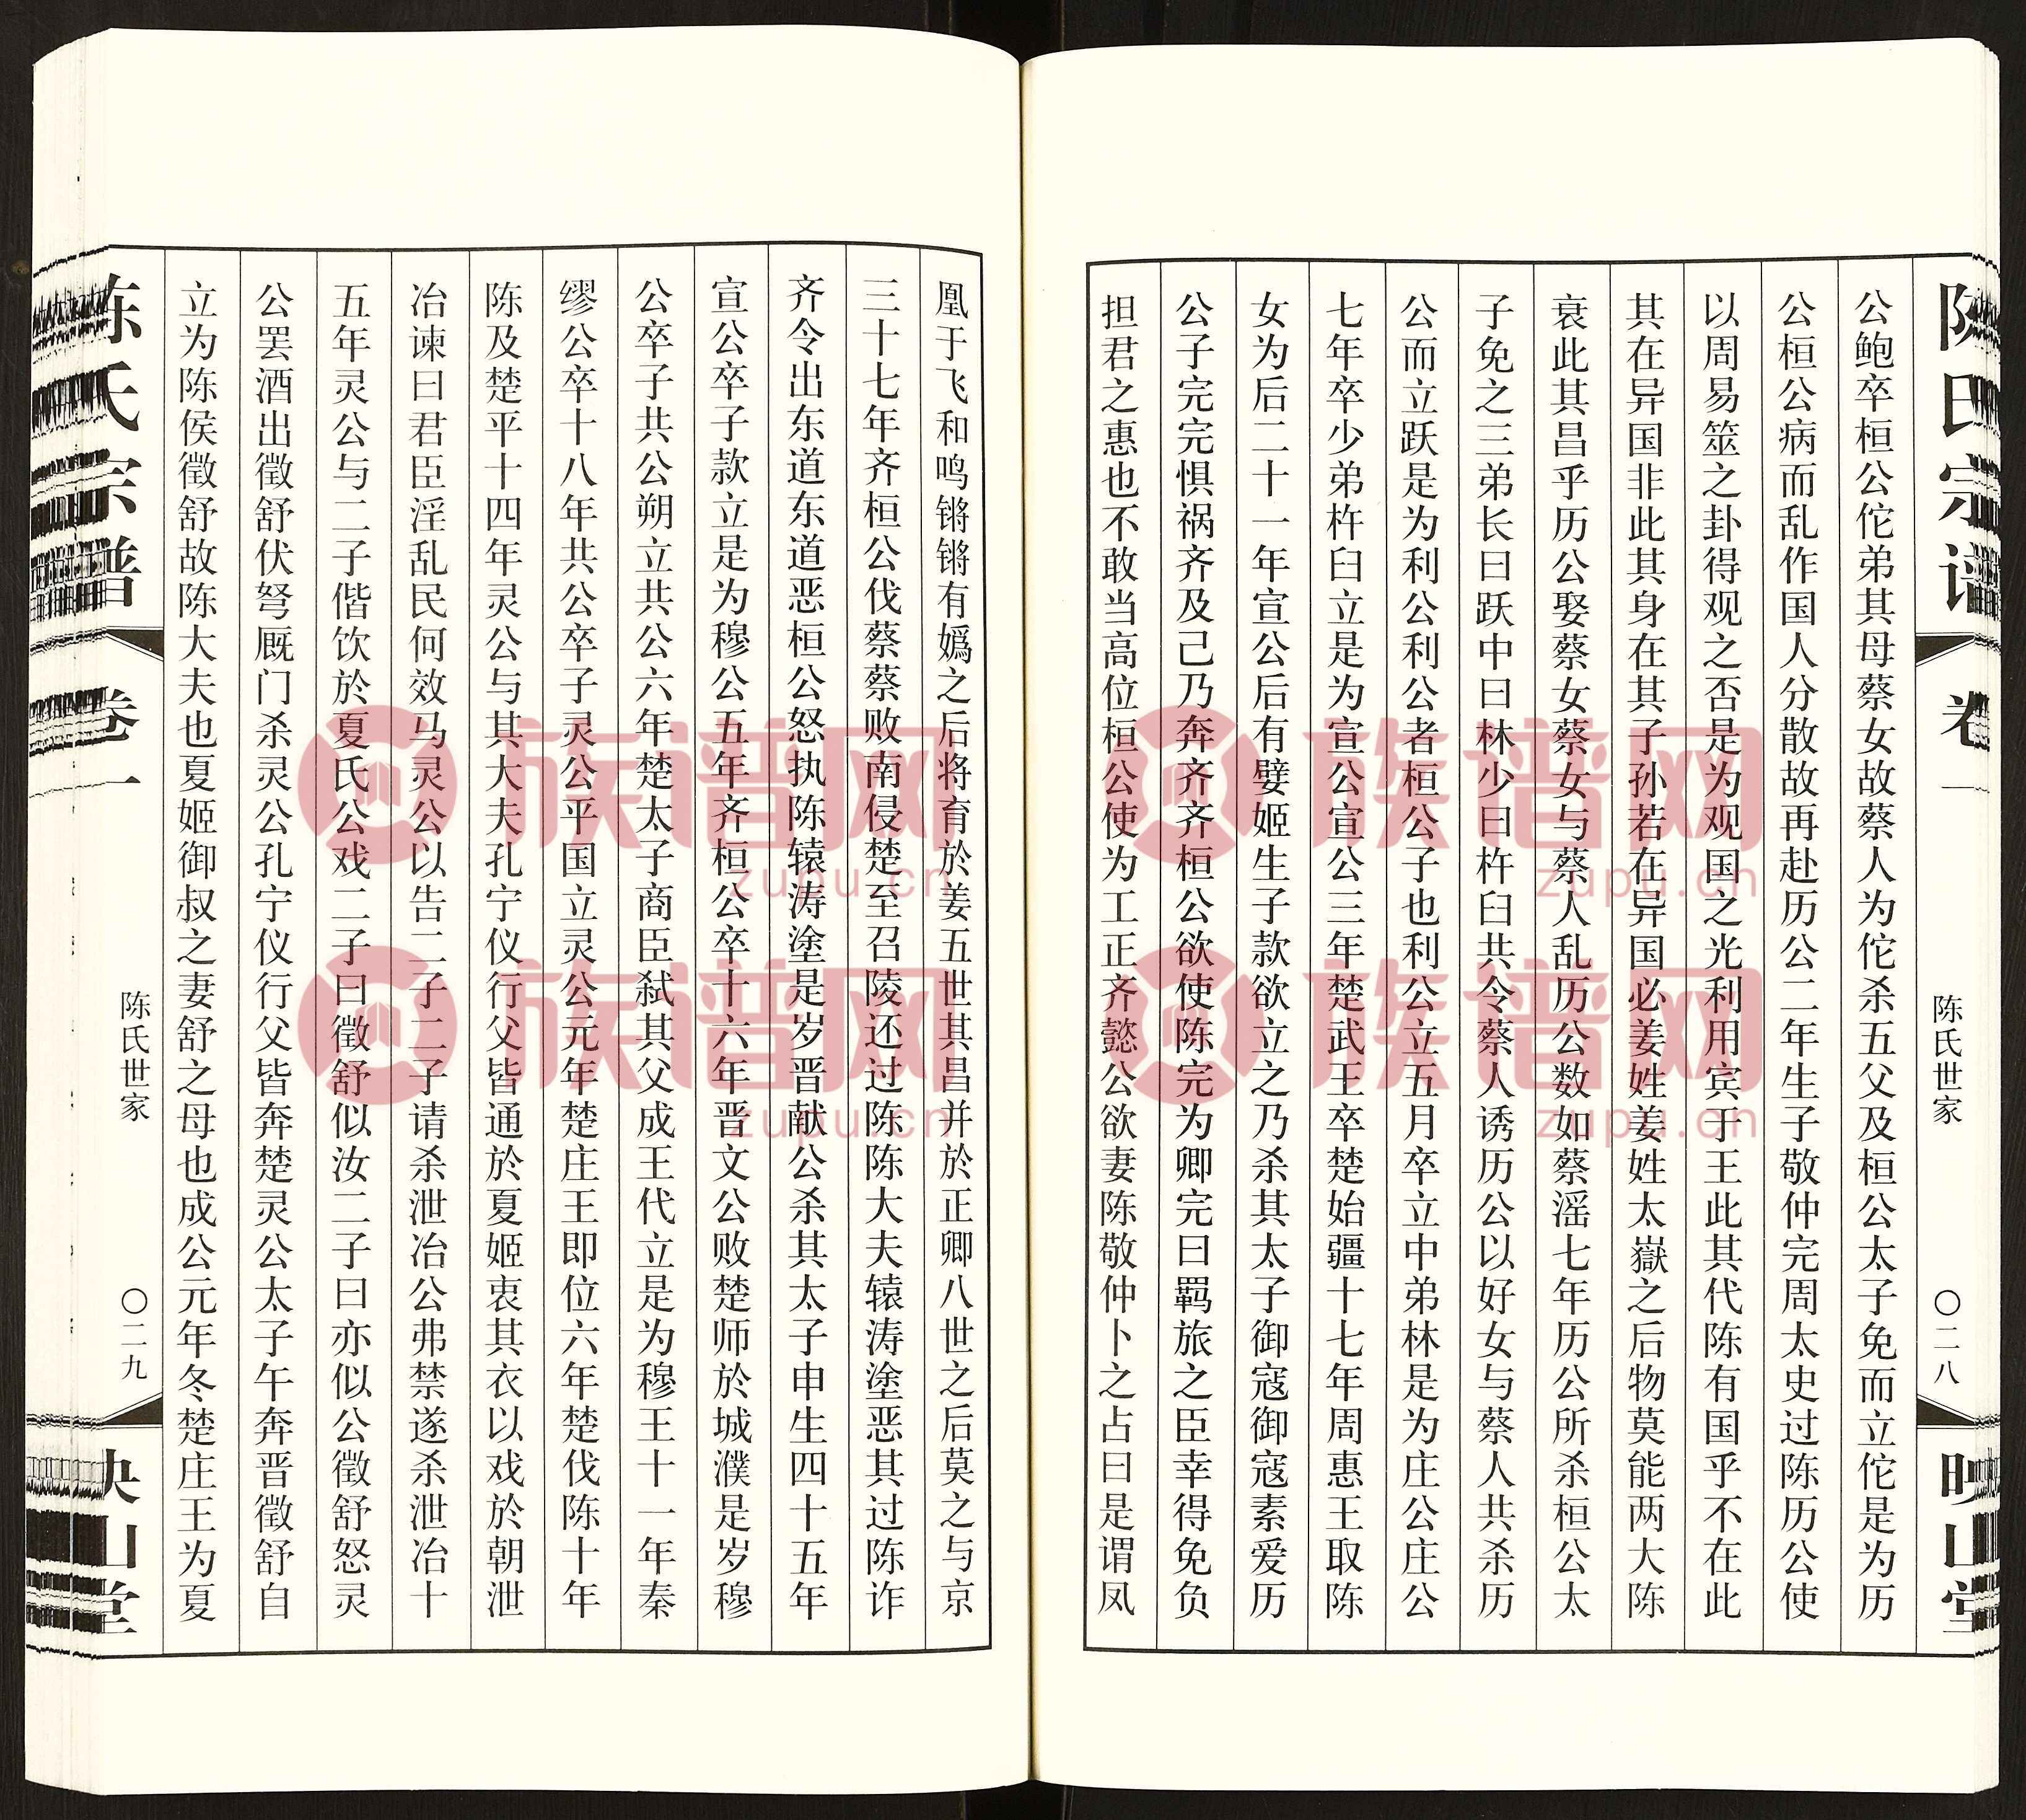 陈氏宗谱
卷一
陈氏世家
〇二八
映山堂
公鲍卒桓公佗弟其母蔡女故蔡人为佗杀五父及桓公太子免而立佗是为历
公桓公病而乱作国人分散故再赴历公二年生子敬仲完周太史过陈历公使
以周易筮之卦得观之否是为观国之光利用宾于王此其代陈有国乎不在此
其在异国非此其身在其子孙若在异国必姜姓姜姓太嶽之后物莫能两大陈
衰此其昌乎历公娶蔡女蔡女与蔡人乱历公数如蔡滛七年历公所杀桓公太
子免之三弟长曰跃中曰林少曰杵臼共令蔡人诱历公以好女与蔡人共杀历
公而立跃是为利公利公者桓公子也利公立五月卒立中弟林是为庄公庄公
七年卒少弟杵臼立是为宣公宣公三年楚武王卒楚始疆十七年周惠王取陈
女为后二十一年宣公后有嬖姬生子款欲立之乃杀其太子御寇御寇素爱历
公子完完惧祸齐及己乃奔齐齐桓公欲使陈完为卿完曰羁旅之臣幸得免负
担君之惠也不敢当高位桓公使为工正齐懿公欲妻陈敬仲卜之占曰是谓凤
凰于飞和鸣锵锵有嬀之后将育於姜五世其昌并於正卿八世之后莫之与京
三十七年齐桓公伐蔡蔡败南侵楚至召陵还过陈陈大夫辕涛塗恶其过陈诈
齐令出东道东道恶桓公怒执陈辕涛塗是岁晋献公杀其太子申生四十五年
宣公卒子款立是为穆公五年齐桓公卒十六年晋文公败楚师於城濮是岁穆
公卒子共公朔立共公六年楚太子商臣弑其父成王代立是为穆王十一年秦
缪公卒十八年共公卒子灵公平国立灵公元年楚庄王即位六年楚伐陈十年
陈及楚平十四年灵公与其大夫孔宁仪行父皆通於夏姬衷其衣以戏於朝泄
冶谏曰君臣淫乱民何效马灵公以告二子二子请杀泄冶公弗禁遂杀泄冶十
五年灵公与二子偕饮於夏氏公戏二子曰徵舒似汝二子曰亦似公徵舒怒灵
公罢酒出徵舒伏弩厩门杀灵公孔宁仪行父皆奔楚灵公太子午奔晋徵舒自
立为陈侯徵舒故陈大夫也夏姬御叔之妻舒之母也成公元年冬楚庄王为夏
陈氏宗谱
卷一
陈氏世家
〇二九
映山堂
族谱网
zupu.cn
族谱网
zupu.cn
族谱网
zupu.cn
族谱网
zupu.cn